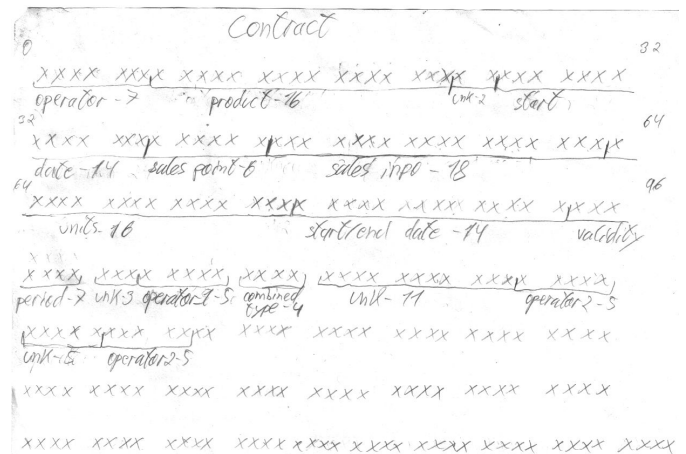 Contract
0 32
xxxx xxxx xxxx xxxx xxxx xxxx xxxx xxxx
operator-7 product-16 unk-2 start
32 64
xxxx xxxx xxxx xxxx xxxx xxxx xxxx xxxx
date-14 sales point-6 sales inpo-18
64 96
xxxx xxxx xxxx xxxx xxxx xxxx xxxx xxxx
units-16 start/end date-14 validity
xxxx xxxx xxxx xxxx xxxx xxxx xxxx xxxx
period-7 unk-3 operator-1-5 combined type-4 unk-11 operator2-5
xxxx xxxx xxxx xxxx xxxx xxxx xxxx xxxx
unk-5 operator2-5
xxxx xxxx xxxx xxxx xxxx xxxx xxxx xxxx
xxxx xxxx xxxx xxxx xxxx xxxx xxxx xxxx xxxx xxxx